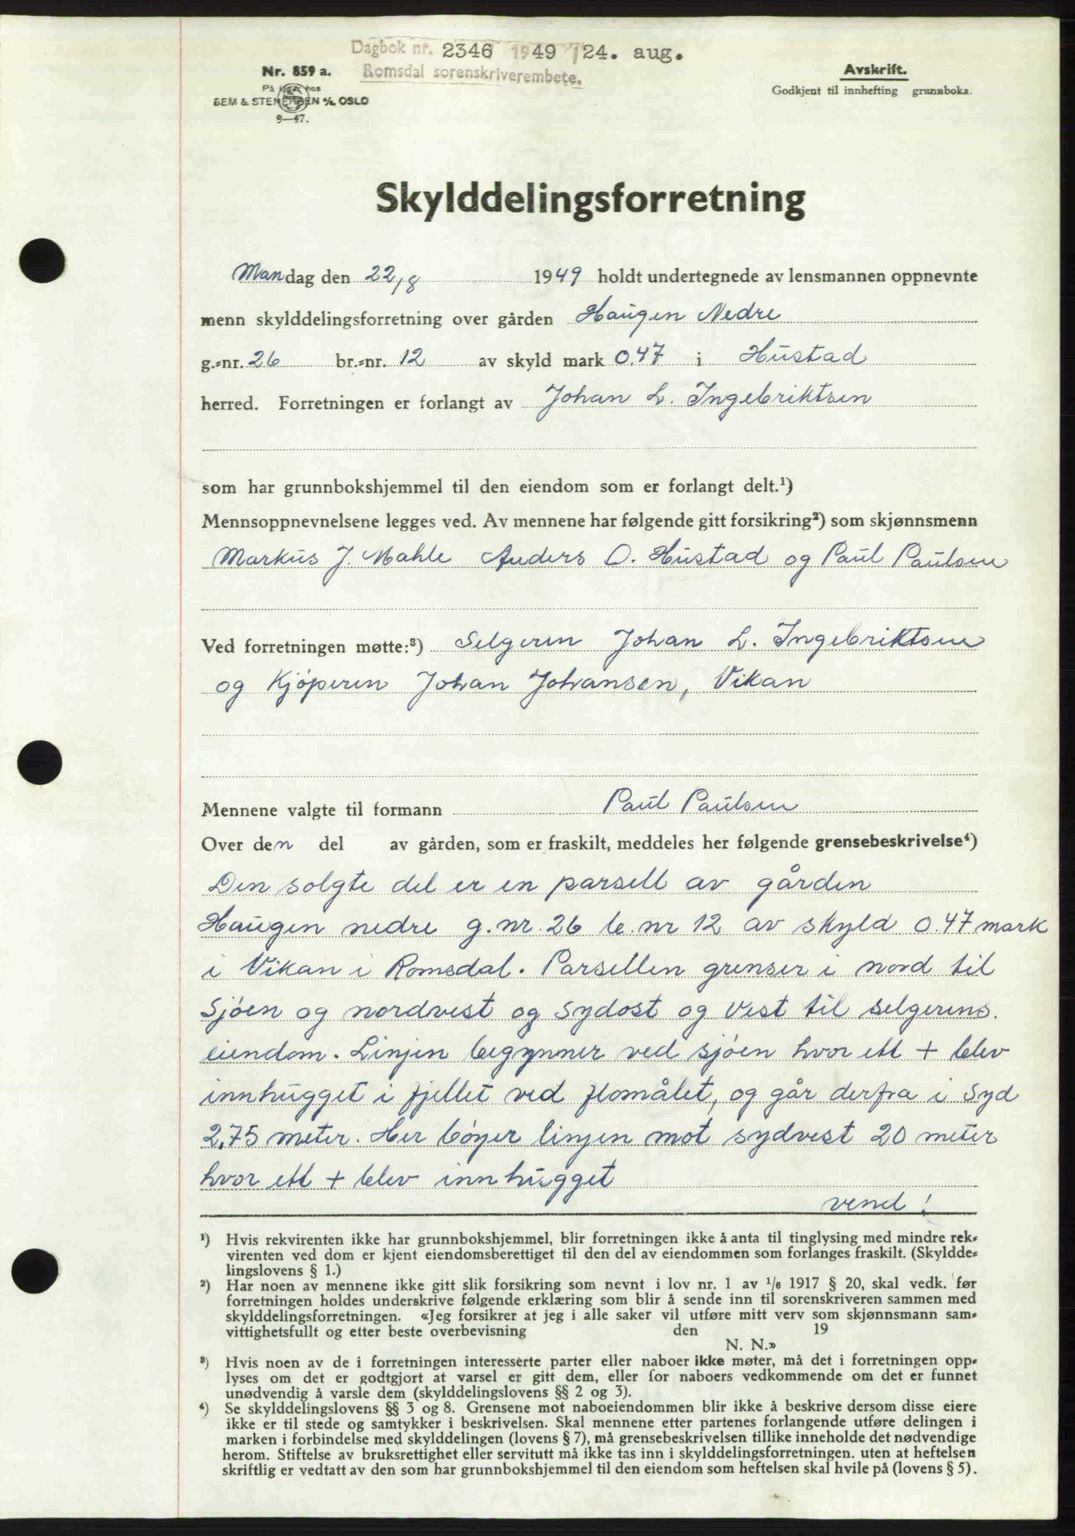 Dagbok nr. 2346 1949 / 24. aug.
Romsdal sorenskriverembete.
Nr. 859 a.
På lager hos
SEM & STENERSEN A/S, OSLO
9—47.
Avskrift.
Godkjent til innhefting grunnboka.
Skylddelingsforretning
Mandag den 22/8 1949 holdt undertegnede av lensmannen oppnevnte
menn skylddelingsforretning over gården Haugen Nedre
g.-nr. 26 br.-nr. 12 av skyld mark 0.47 i Hustad
herred. Forretningen er forlangt av Johan L. Ingebriktsen
som har grunnbokshjemmel til den eiendom som er forlangt delt.¹)
Mennsoppnevnelsene legges ved. Av mennene har følgende gitt forsikring²) som skjønnsmenn
Markus J. Mahle Anders O. Hustad og Paul Paulsen
Ved forretningen møtte:³) Selgeren Johan L. Ingebriktsen
og Kjøperen Johan Johansen, Vikan
Mennene valgte til formann Paul Paulsen
Over den del av gården, som er fraskilt, meddeles her følgende grensebeskrivelse⁴)
Den solgte del er en parsell av gården
Haugen nedre g.nr. 26 b.nr 12 av skyld 0.47 mark
i Vikan i Romsdal. Parsellen grenser i nord til
Sjøen og nordvest og Sydost og Vest til selgerens.
eiendom. Linjen begynner ved sjøen hvor ett + blev
innhugget i fjellet ved flomålet, og går derfra i Syd
2,75 meter. Her bøyer linjen mot sydvest 20 meter
hvor ett + blev innhugget
vend!
¹) Hvis rekvirenten ikke har grunnbokshjemmel, blir forretningen ikke å anta til tinglysing med mindre rek-
virenten ved dom er kjent eiendomsberettiget til den del av eiendommen som forlanges fraskilt. (Skyldde-
lingslovens § 1.)
²) Har noen av mennene ikke gitt slik forsikring som nevnt i lov nr. 1 av 1/6 1917 § 20, skal vedk. før
forretningen holdes underskrive følgende erklæring som blir å sende inn til sorenskriveren sammen med
skylddelingsforretningen. «Jeg forsikrer at jeg i alle saker vil utføre mitt verv som skjønnsmann sam-
vittighetsfullt og etter beste overbevisning den 19
N. N.»
³) Hvis noen av de i forretningen interesserte parter eller naboer ikke møter, må det i forretningen opp-
lyses om det er godtgjort at varsel er gitt dem, eller for naboers vedkommende om det er funnet
unødvendig å varsle dem (skylddelingslovens §§ 2 og 3).
⁴) Se skylddelingslovens §§ 3 og 8. Grensene mot naboeiendommen blir ikke å beskrive dersom disse eiere
ikke er til stede og samtykker i beskrivelsen. Skal mennene etter partenes forlangende utføre delingen i
marken i forbindelse med skylddelingen (lovens § 7), må grensebeskrivelsen tillike inneholde det nødvendige
herom. Stiftelse av bruksrettighet eller servitutt må ikke tas inn i skylddelingsforretningen, uten at heftelsen
skriftlig er vedtatt av den som har grunnbokshjemmel til den eiendom som heftelsen skal hvile på (lovens § 5).